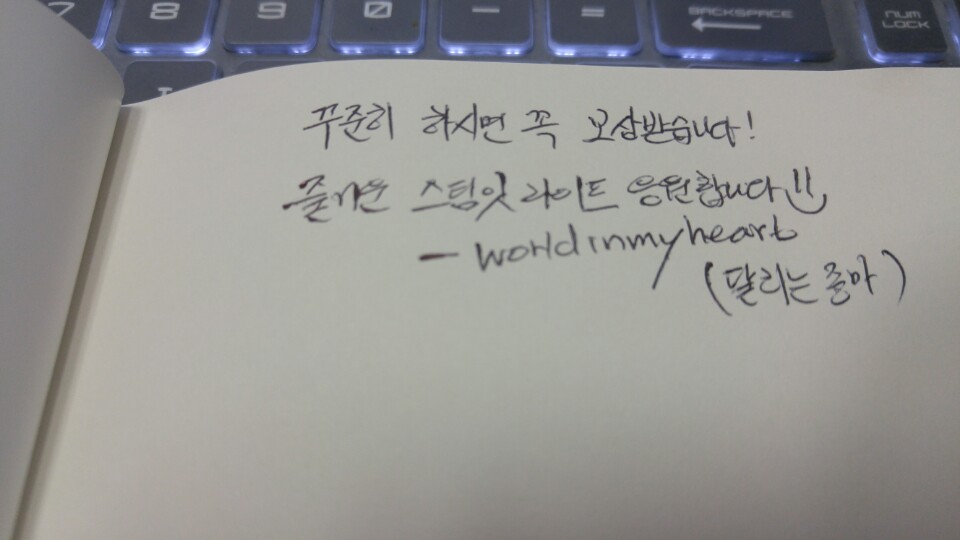 7 8 9 0 - = BACKSPACE NUM LOCK
꾸준히 하시면 꼭 보상받습니다!
즐거운 스팀잇 라이트 응원합니다!!
- worldinmyheart
(달리는 좀마)